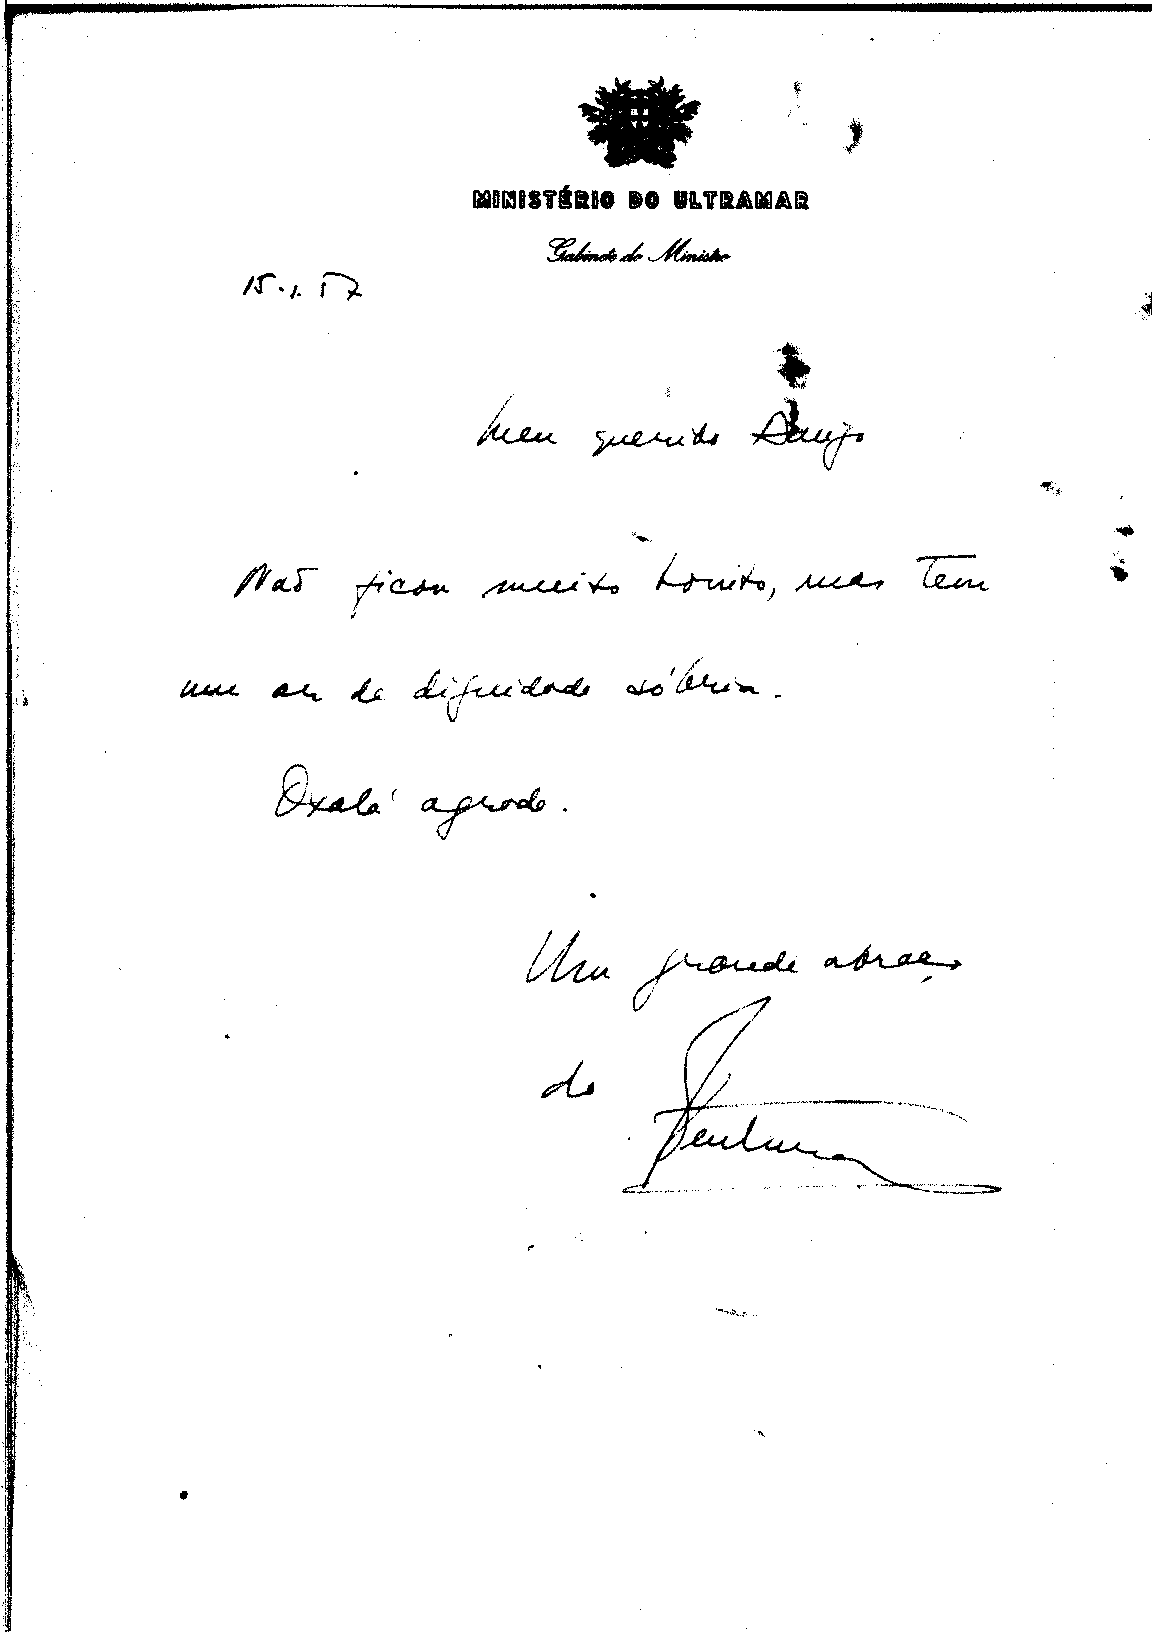 MINISTÉRIO DO ULTRAMAR
Gabinete do Ministro
15.1.57
Meu querido Araujo
Não ficou muito bonito, mas tem
um ar de dignidade sóbria.
Oxalá agrade.
Um grande abraço
do
Ventura